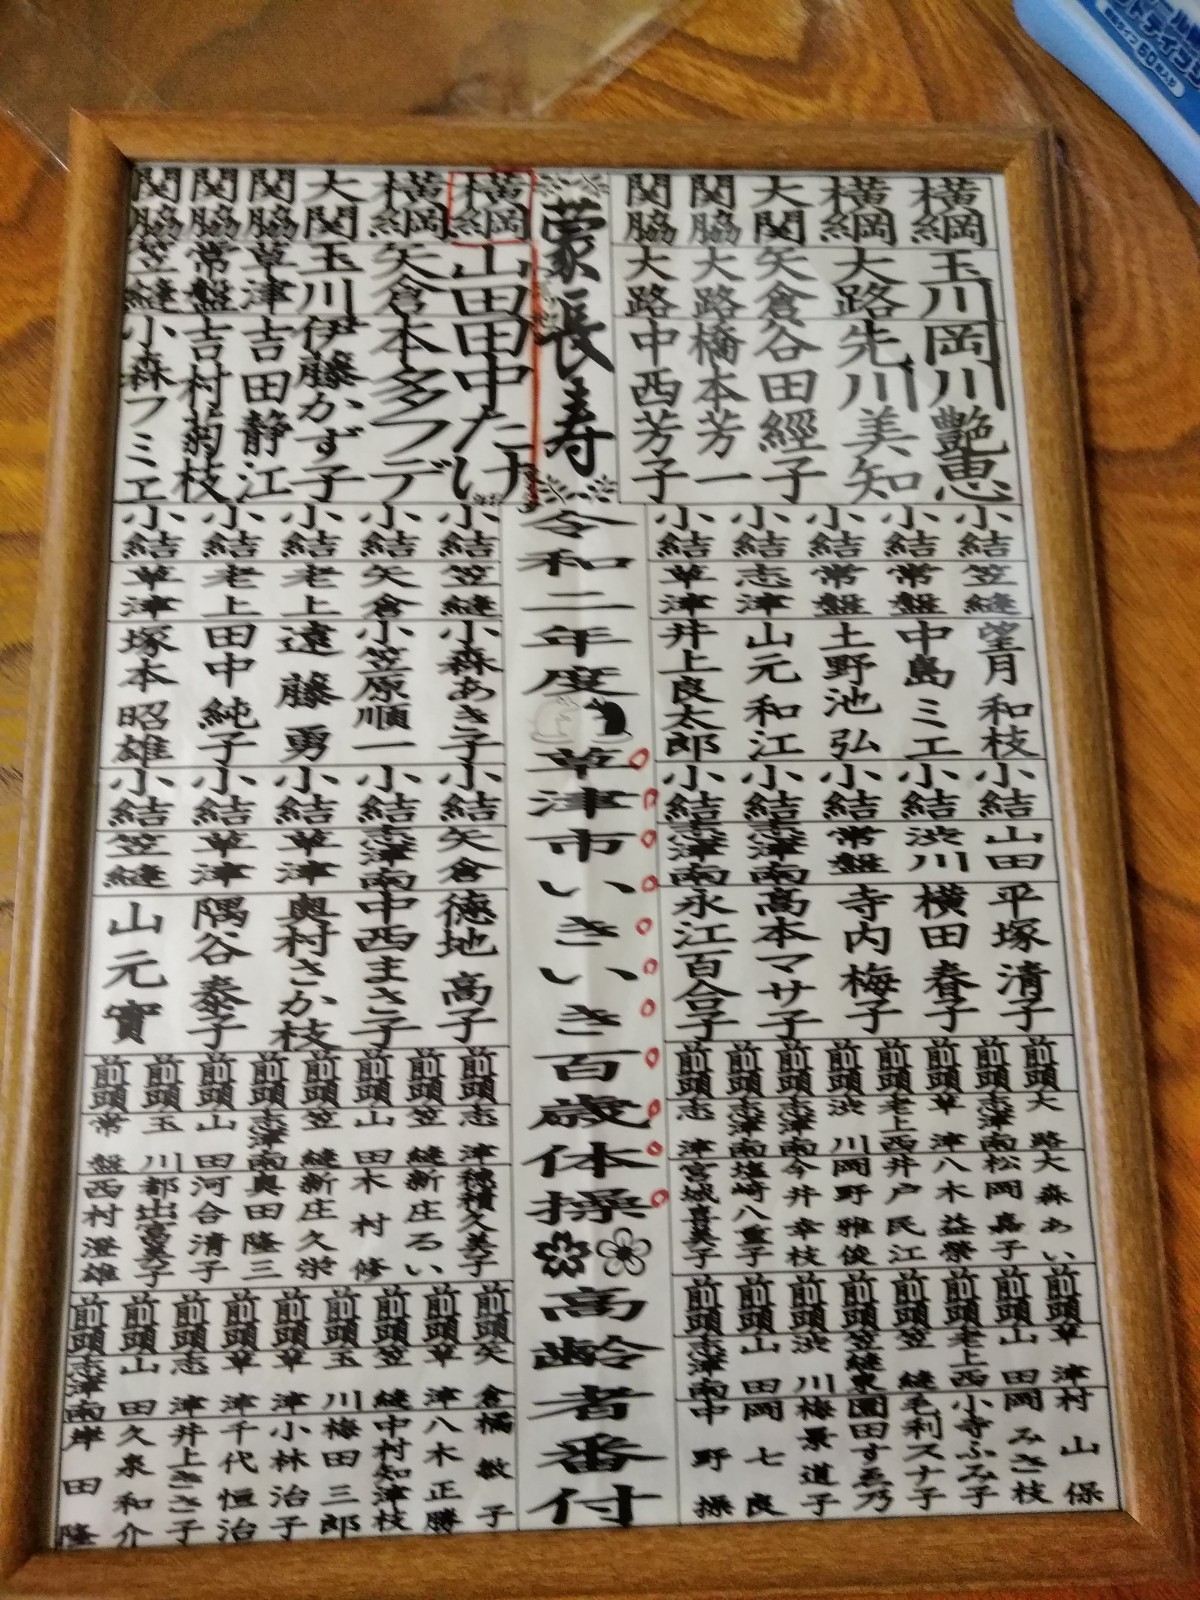 蒙長寿
令和二年度
草津市いきいき百歳体操
高齢者番付
横綱 玉川 岡川艶恵
横綱 大路 先川美知
大関 矢倉 谷田經子
関脇 大路 橋本芳一
関脇 大路 中西芳子
横綱 山田 田中たけ
横綱 矢倉 本多フデ
大関 玉川 伊藤かず子
関脇 草津 吉田静江
関脇 常盤 吉村菊枝
関脇 笠縫 小森フミヱ
小結 笠縫 望月和枝
小結 常盤 中島ミエ
小結 常盤 土野池弘
小結 志津 山元和江
小結 草津 井上良太郎
小結 笠縫 小森あき子
小結 矢倉 小笠原順一
小結 老上 遠藤勇
小結 老上 田中純子
小結 草津 塚本昭雄
小結 山田 平塚清子
小結 渋川 横田春子
小結 常盤 寺内梅子
小結 志津南 高本マサ子
小結 志津南 永江百合子
小結 矢倉 徳地高子
小結 志津南 中西まさ子
小結 草津 奥村さか枝
小結 草津 隅谷泰子
小結 笠縫 山元實
前頭 大路 大森あい
前頭 志津南 松岡嘉子
前頭 草津 八木益榮
前頭 老上西 井戸民江
前頭 渋川 岡野雅俊
前頭 志津南 今井幸枝
前頭 志津南 塩崎八重子
前頭 志津 宮城喜美子
前頭 志津 穂積久美子
前頭 笠縫 新庄るい
前頭 山田 木村修
前頭 笠縫 新庄久栄
前頭 志津南 奥田隆三
前頭 山田 河合清子
前頭 玉川 都出富美子
前頭 常盤 西村澄雄
前頭 草津 村山保
前頭 山田 岡みさ枝
前頭 老上西 小寺ふみ子
前頭 笠縫 毛利スナ子
前頭 笠縫東 園田すゑ乃
前頭 渋川 梅景道子
前頭 山田 岡七良
前頭 志津南 中野操
前頭 矢倉 橘敏子
前頭 草津 八木正勝
前頭 笠縫 中村知津枝
前頭 玉川 梅田三郎
前頭 草津 小林治子
前頭 草津 千代恒治
前頭 志津 井上きさ子
前頭 山田 久泉和介
前頭 志津南 岸田隆